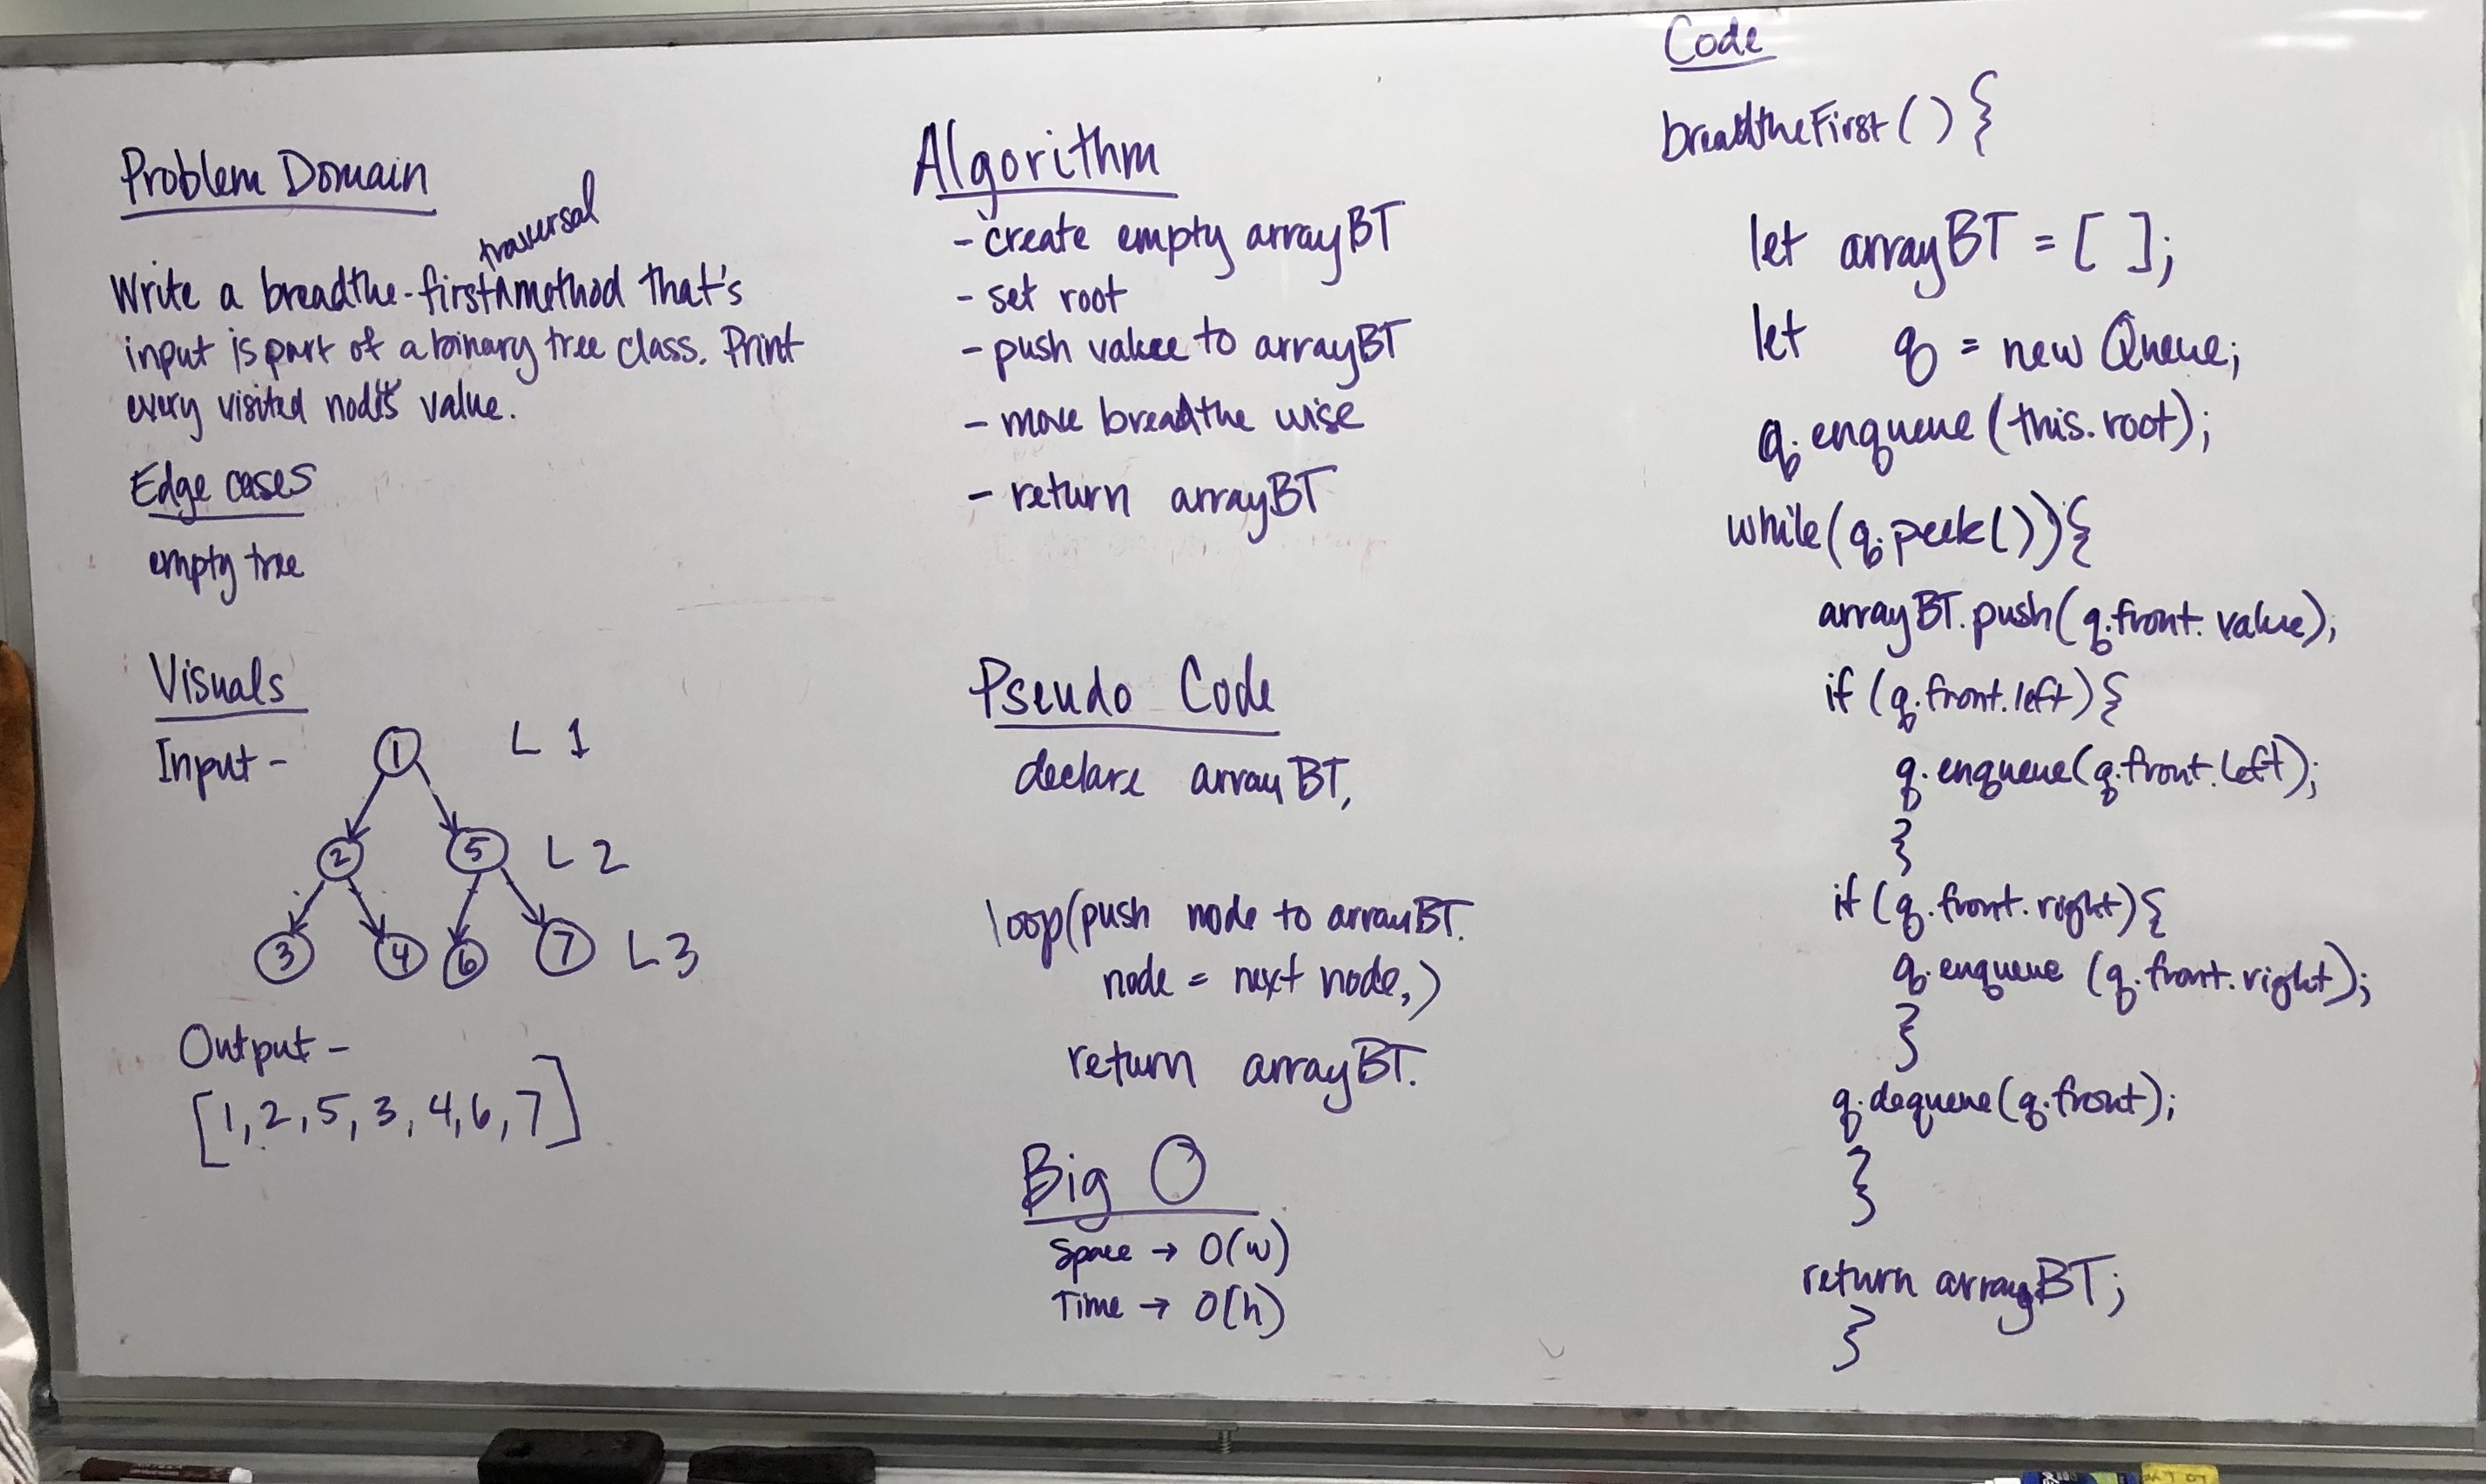 Problem Domain
Write a breadthe-first traversal method that's
input is part of a binary tree class. Print
every visited node's value.
Edge cases
empty tree
Visuals
Input -
1
L 1
2
5
L 2
3
4
6
7
L3
Output -
[1,2,5,3,4,6,7]
Algorithm
- create empty arrayBT
- set root
- push value to arrayBT
- move breadthe wise
- return arrayBT
Pseudo Code
declare arrayBT,
loop(push node to arrayBT.
node = next node,)
return arrayBT.
Big O
Space → O(w)
Time → O(h)
Code
breadtheFirst() {
let arrayBT = [ ];
let q = new Queue;
q.enqueue(this.root);
while(q.peek()){
arrayBT.push(q.front.value);
if (q.front.left){
q.enqueue(q.front.left);
}
if (q.front.right){
q.enqueue (q.front.right);
}
q.dequeue(q.front);
}
return arrayBT;
}